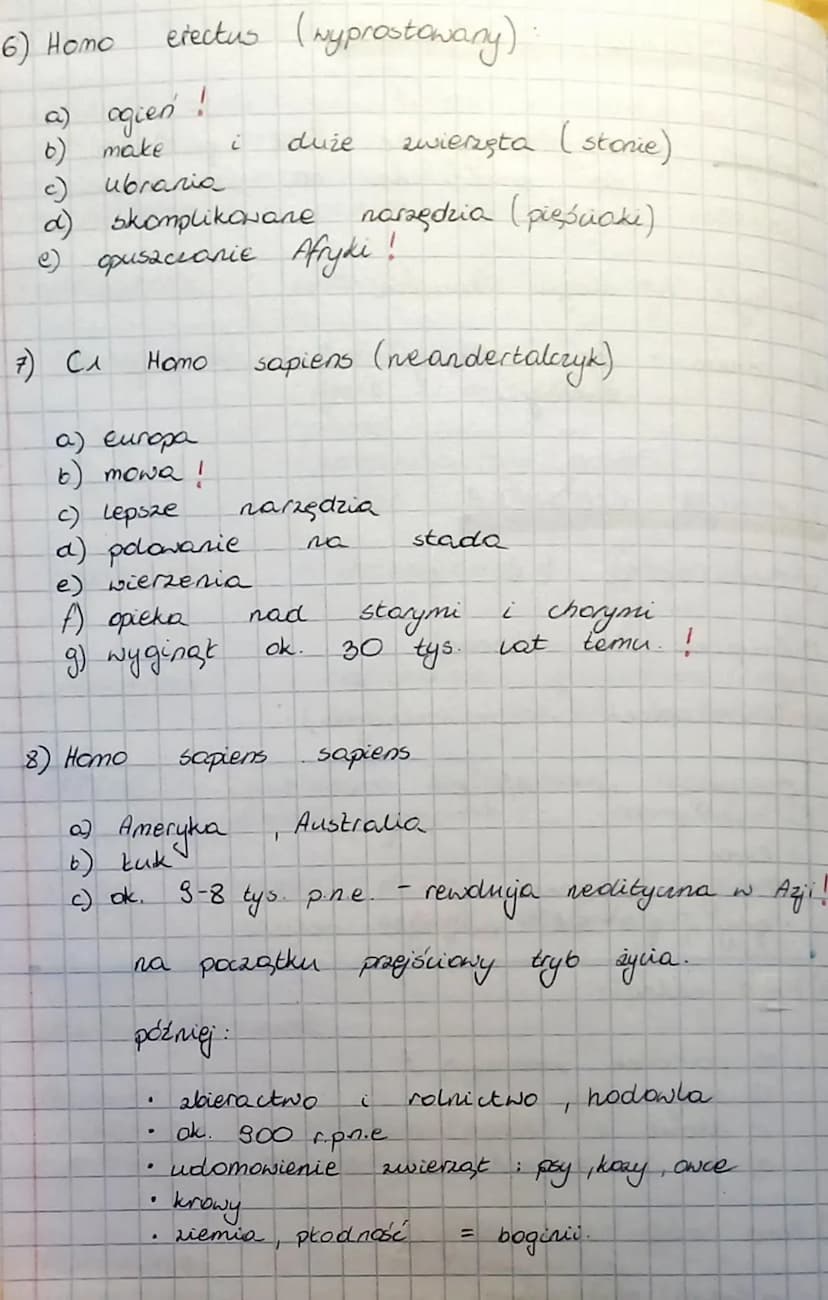 6) Homo erectus (wyprostowany):
a) ogień!
b) małe i duże zwierzęta (słonie)
c) ubrania
d) skomplikowane narzędzia (pięściaki)
e) opuszczanie Afryki!
7) Cz Homo sapiens (neandertalczyk)
a) europa
b) mowa!
c) lepsze narzędzia
d) polowanie na stada
e) wierzenia
f) opieka nad starymi i chorymi
g) wyginął ok. 30 tys. lat temu.!
8) Homo sapiens sapiens
a) Ameryka, Australia
b) Łuk
c) ok. 9-8 tys. p.n.e. - rewolucja neolityczna w Azji!
na początku przejściowy tryb życia.
później:
• zbieractwo i rolnictwo, hodowla
• ok. 900 r.p.n.e
• udomowienie zwierząt: psy, kozy, owce
• krowy
• ziemia, płodność = bogini.